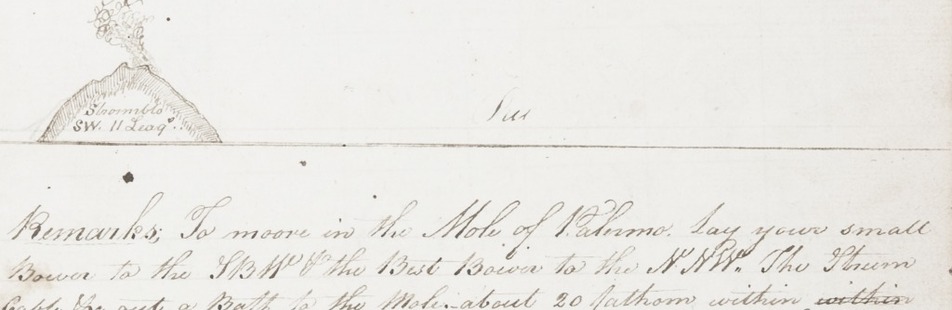 Stromblo
SW. 11 Leags.
Sea
Remarks; To moore in the Mole of Palermo. Lay your small
Bower to the SBW & the Best Bower to the NNW. The Stream
Cable & put a Baft to the Mole about 20 fathom within within